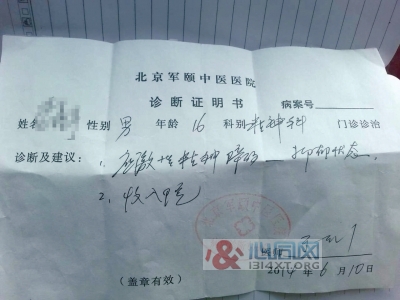 北京军颐中医医院
诊断证明书
病案号
姓名 性别 男 年龄 16 科别 精神科 门诊诊治
诊断及建议：1、应激性精神障碍——抑郁状态
2、收入
医师
(盖章有效) 2014年6月10日
心同网
1314XT.ORG